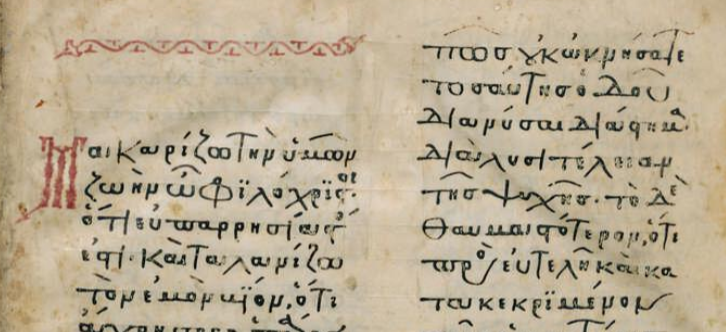 Μακαρίζω τὴν ὑμῶν
ζωὴν ὦ φϊλόχρϊστοι
ὅτι εὐπαρρησίαστός
ἐστι· καὶ ταλανίζω
τὸν ἐμὸν βίον, ὅτι
πῶς οὐκ ὠκνήσατε
τοσαύτης ὁδοῦ
διανύσαι διάστημα
διὰ λυσιτέλειαν
τῆς ψυχῆς· τὸ δὲ
θαυμαστότερον, ὅτι
πρὸς εὐτελῆ καὶ κα
τακεκρϊμένον